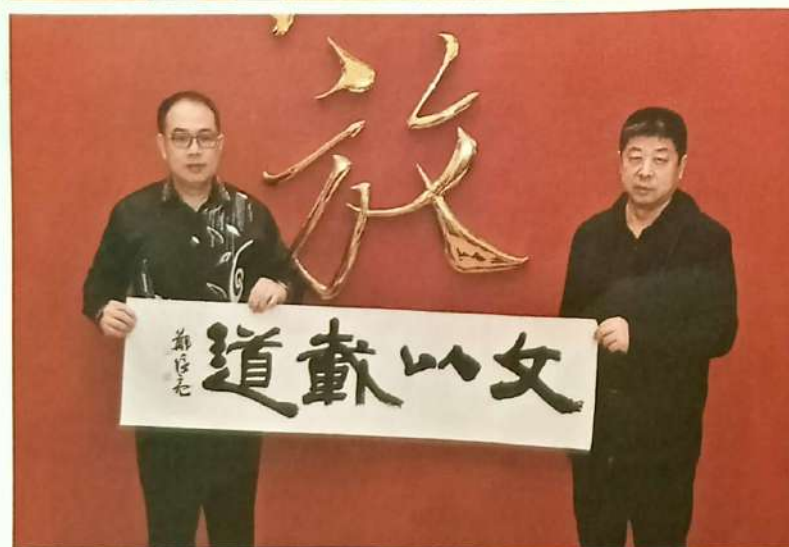 放
文以載道